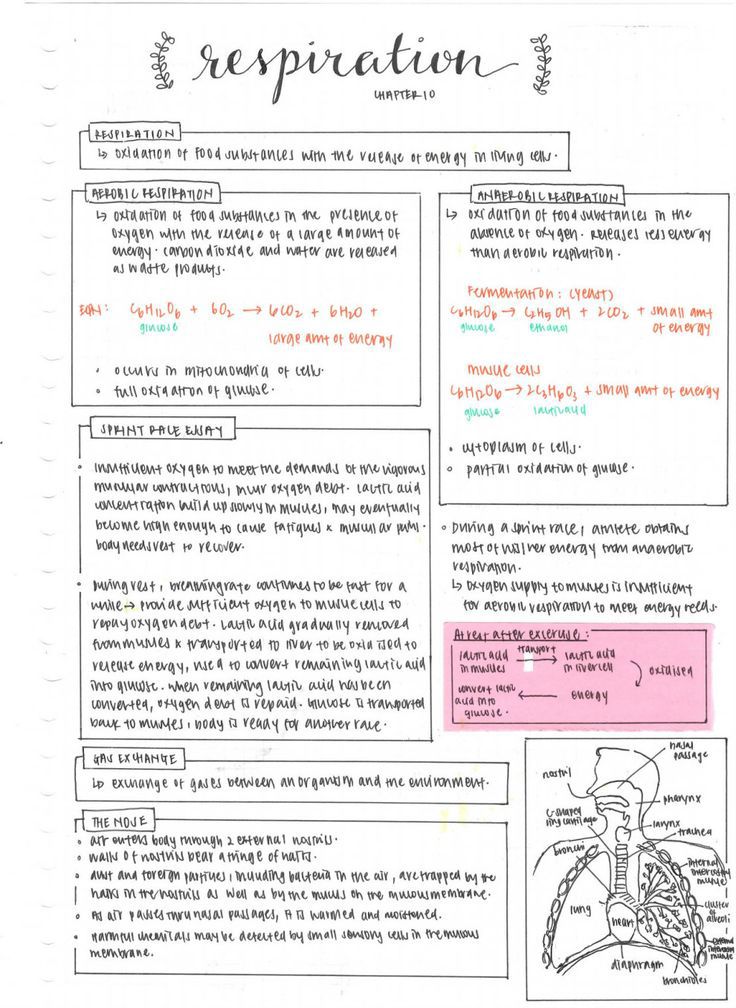 respiration
CHAPTER 10
RESPIRATION
↳ oxidation of food substances with the release of energy in living cells.
AEROBIC RESPIRATION
↳ oxidation of food substances in the presence of
oxygen with the release of a large amount of
energy. carbon dioxide and water are released
as waste products.
EQN: C6H12O6 + 6O2 → 6CO2 + 6H2O +
glucose
large amt of energy
• occurs in mitochondria of cells.
• full oxidation of glucose.
ANAEROBIC RESPIRATION
↳ oxidation of food substances in the
absence of oxygen. Releases less energy
than aerobic respiration.
Fermentation: (yeast)
C6H12O6 → C2H5OH + 2CO2 + small amt
glucose ethanol of energy
muscle cells
C6H12O6 → 2C3H6O3 + small amt of energy
glucose lactic acid
• cytoplasm of cells.
• partial oxidation of glucose.
SPRINT RACE ESSAY
• Insufficient oxygen to meet the demands of the vigorous
muscular contractions, incur oxygen debt. Lactic acid
concentration build up slowly in muscles, may eventually
become high enough to cause fatigues & muscular pains.
body needs rest to recover.
• During rest, breathing rate continues to be fast for a
while → provide sufficient oxygen to muscle cells to
repay oxygen debt. Lactic acid gradually removed
from muscles & transported to liver to be oxidised to
release energy, used to convert remaining lactic acid
into glucose. When remaining lactic acid has been
converted, oxygen debt is repaid. Glucose is transported
back to muscles, body is ready for another race.
• During a sprint race, athlete obtains
most of his/her energy from anaerobic
respiration.
↳ Oxygen supply to muscles is insufficient
for aerobic respiration to meet energy needs.
At rest after exercise:
lactic acid transport lactic acid
in muscles → in liver cell
oxidised
convert lactic ← energy
acid into
glucose.
GAS EXCHANGE
↳ exchange of gases between an organism and the environment.
THE NOSE
• air enters body through 2 external nostrils.
• walls of nostrils bear a fringe of hairs.
• dust and foreign particles, including bacteria in the air, are trapped by the
hairs in the nostrils as well as by the mucus on the mucous membrane.
• As air passes thru nasal passages, it is warmed and moistened.
• Harmful chemicals may be detected by small sensory cells in the mucous
membrane.
nasal
passage
nostril
pharynx
C-shaped
ring cartilage
larynx
trachea
bronchi
internal
intercostal
muscle
cluster
of
alveoli
lung
heart
external
intercostal
muscle
diaphragm
bronchioles